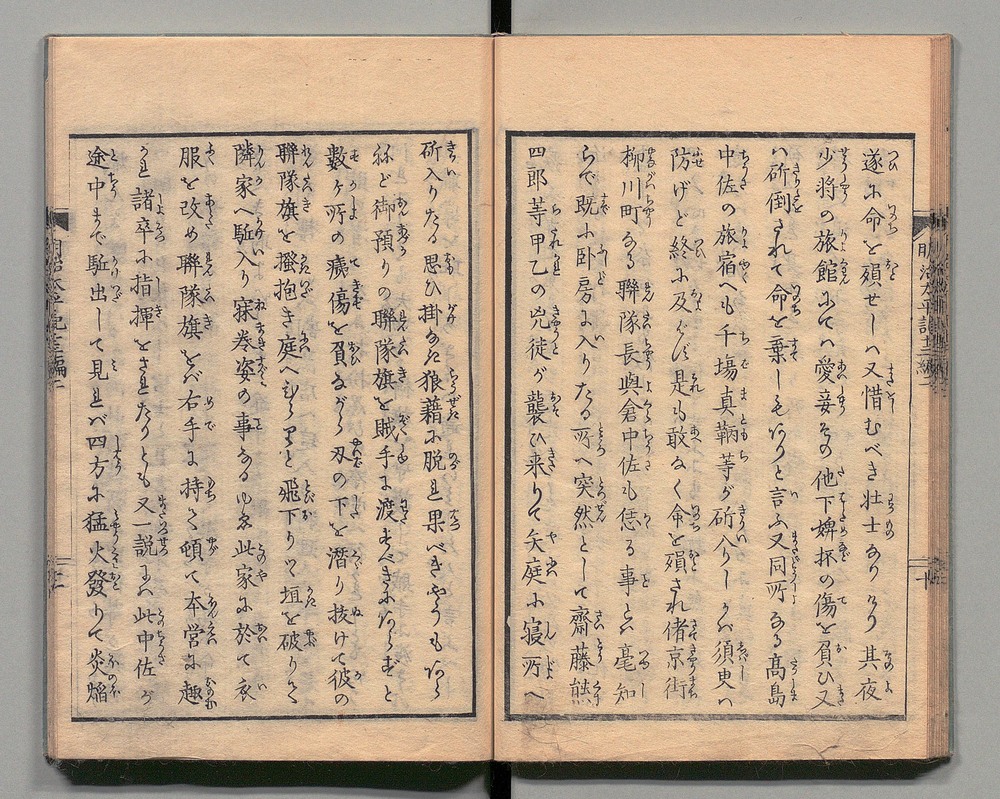 遂に命を殞せしハ又惜むべき壮士なりけり其夜
少将の旅館にてハ愛妾その他下婢抔の傷を負ひ又
ハ斫倒されて命を棄しもありと言ふ又同所なる髙島
中佐の旅宿へも千塲真鞆等が斫入りしかバ須臾ハ
防げど終に及ばず是も敢なく命を殞され偖京街
柳川町なる聯隊長與倉中佐も恁る事とハ毫知
らで既に卧房に入りたる所へ突然として齋藤熊
四郎等甲乙の兇徒が襲ひ来りて矢庭に寝所へ
斫入りたる思ひ掛なき狼藉に脱れ果べきやうもあら
ねど御預りの聯隊旗を賊手に渡すべきにあらずと
數ヶ所の痍傷を負ながら刃の下を潜り抜けて彼の
聯隊旗を搔抱き庭へひらりと飛下りつゝ垣を破りて
隣家へ駈入り寐巻姿の事なるゆゑ此家に於て衣
服を改め聯隊旗をバ右手に持て頓て本営に趣
かれ諸卒に指揮をされたりとも又一説にハ此中佐が
途中まで駈出して見れバ四方に猛火發りて炎熖
明治太平記十二編二
十